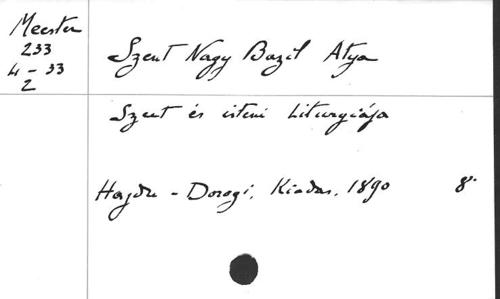 Meester
233
4 - 33
2
Szent Nagy Bazil Atya
Szent és isteni Liturgiája
Hajdu - Dorogi, Kiadas. 1890 8°